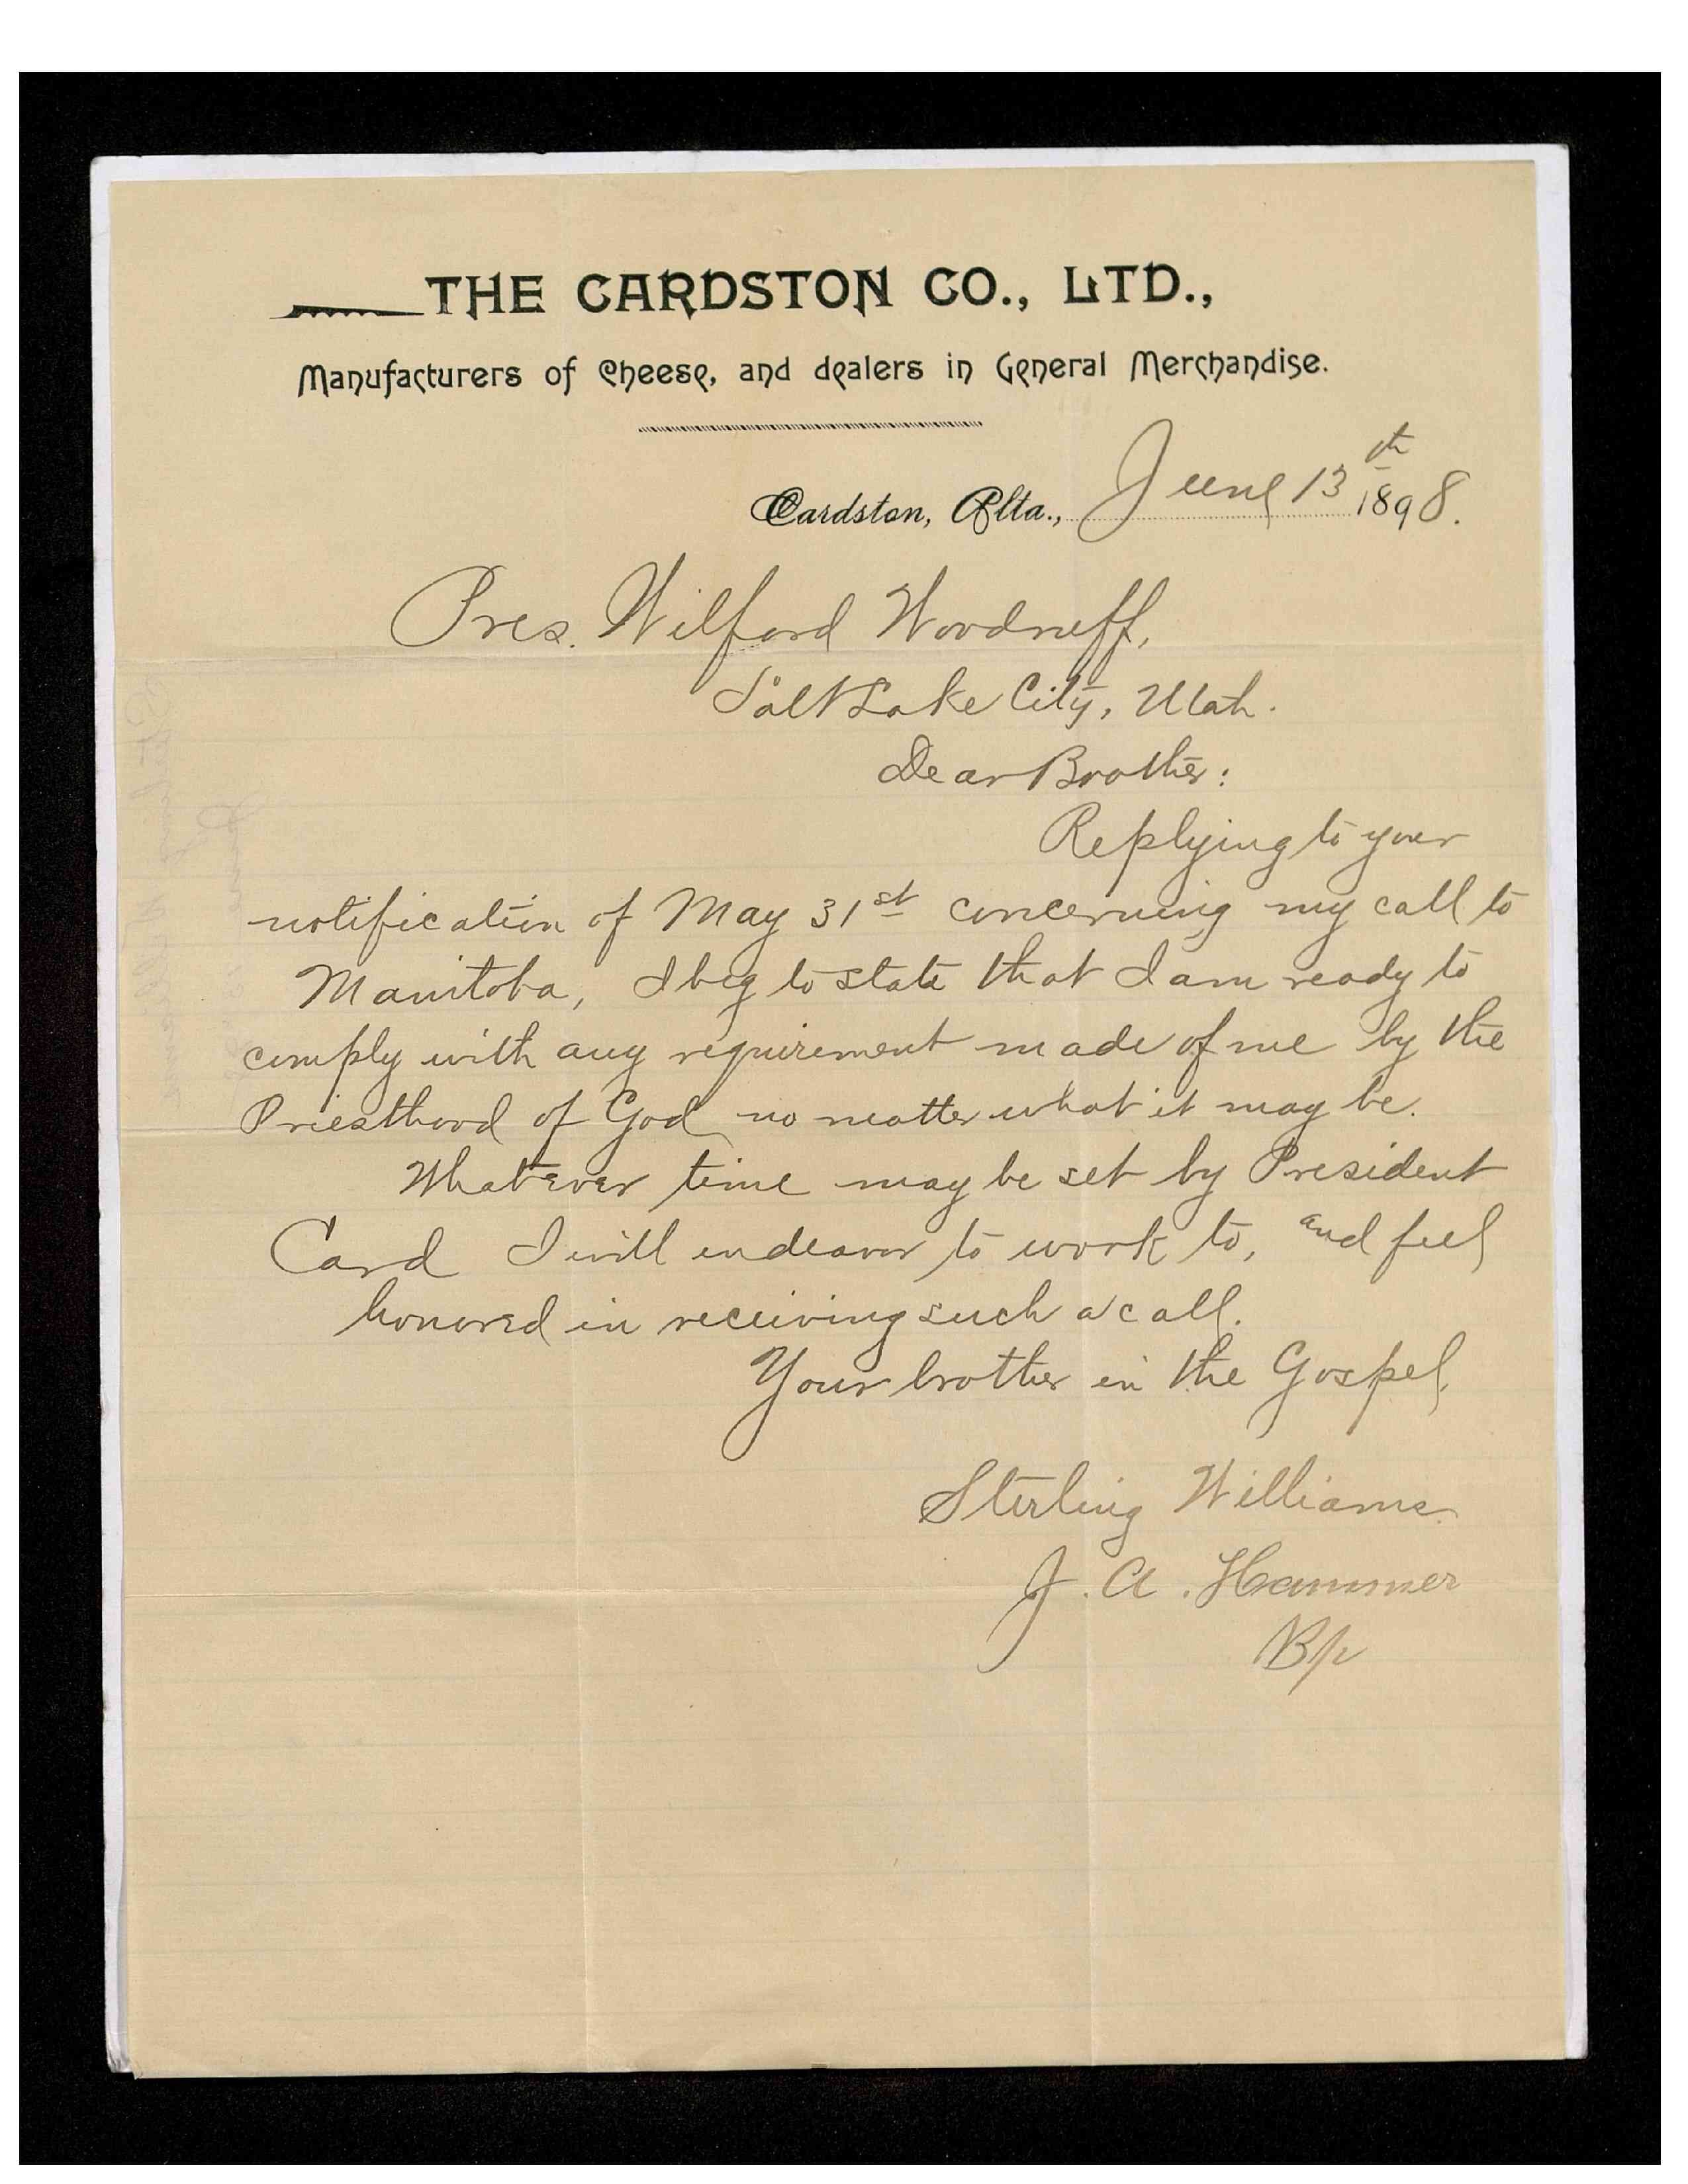 THE CARDSTON CO., LTD.,
Manufacturers of Cheese, and dealers in General Merchandise.
Cardston, Alta., June 13th 1898.
Pres. Wilford Woodruff,
Salt Lake City, Utah.
Dear Brother:
Replying to your
notification of May 31st concerning my call to
Manitoba, I beg to state that I am ready to
comply with any requirement made of me by the
Priesthood of God no matter what it may be.
Whatever time may be set by President
Card I will endeavor to work to, and feel
honored in receiving such a call.
Your brother in the Gospel,
Sterling Williams.
J. A. Hammer
Bp